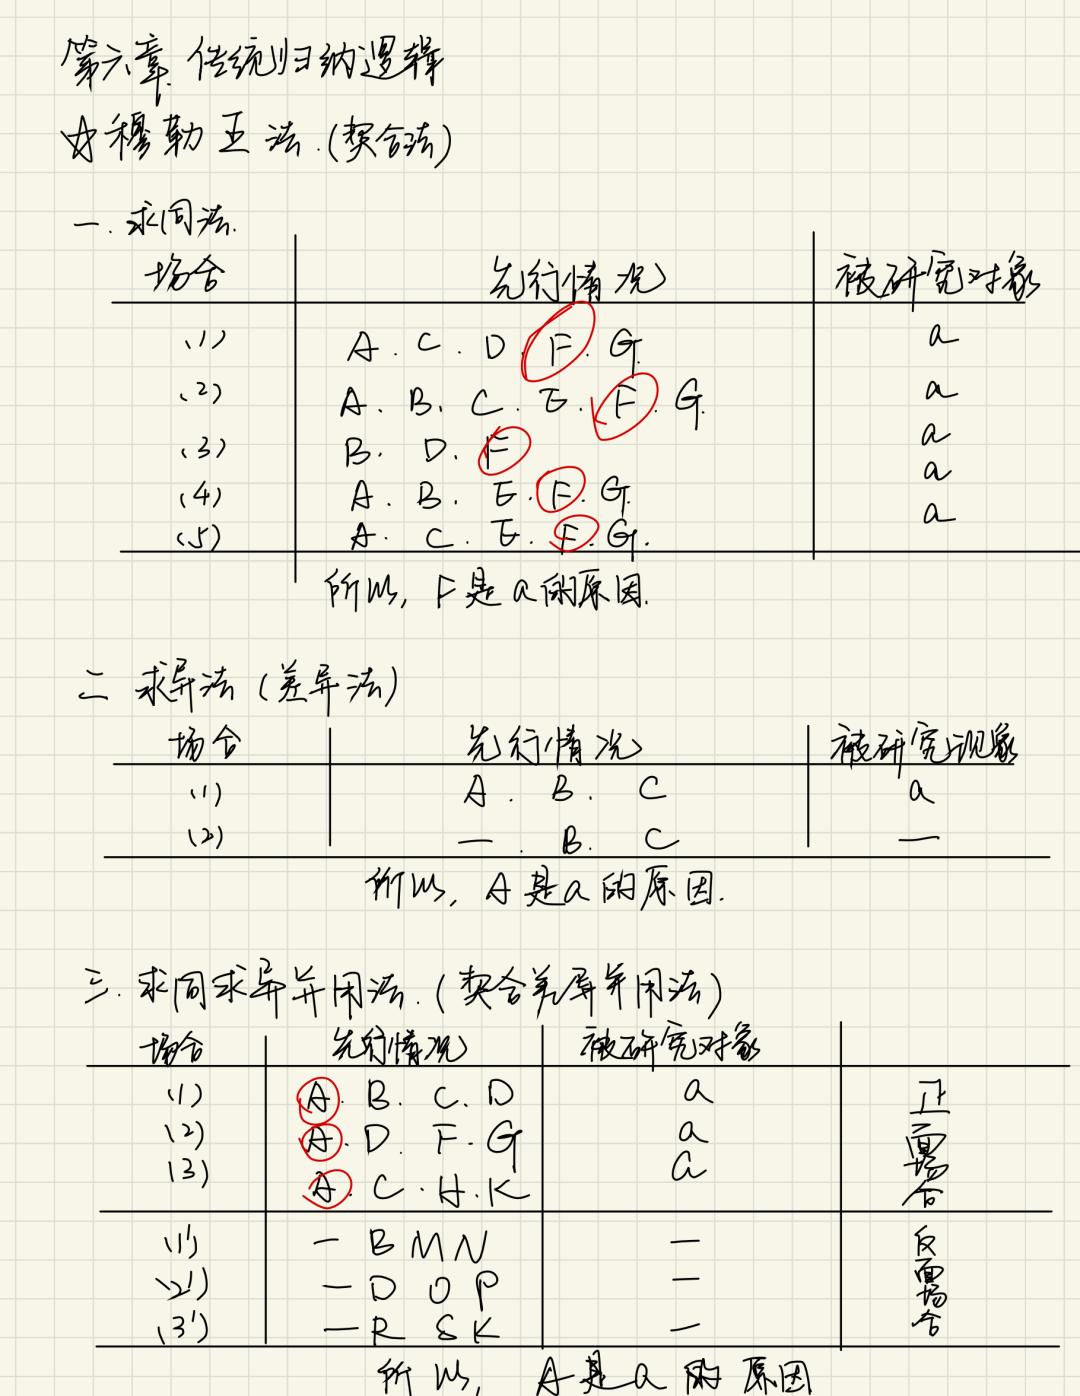 第六章 传统归纳逻辑
☆穆勒五法.(契合法)
一.求同法.
场合 先行情况 被研究对象
(1) A.C.D.F.G. a
(2) A.B.C.E.F.G. a
(3) B.D.F a
(4) A.B.E.F.G. a
(5) A.C.E.F.G. a
所以,F是a的原因.
二 求异法(差异法)
场合 先行情况 被研究现象
(1) A.B.C a
(2) —.B.C —
所以,A是a的原因.
三.求同求异并用法.(契合差异并用法)
场合 先行情况 被研究对象
(1) A.B.C.D a 正面场合
(2) A.D.F.G a
(3) A.C.H.K a
(1') — B M N — 反面场合
(2') — D O P —
(3') — R S K —
所以,A是a的原因